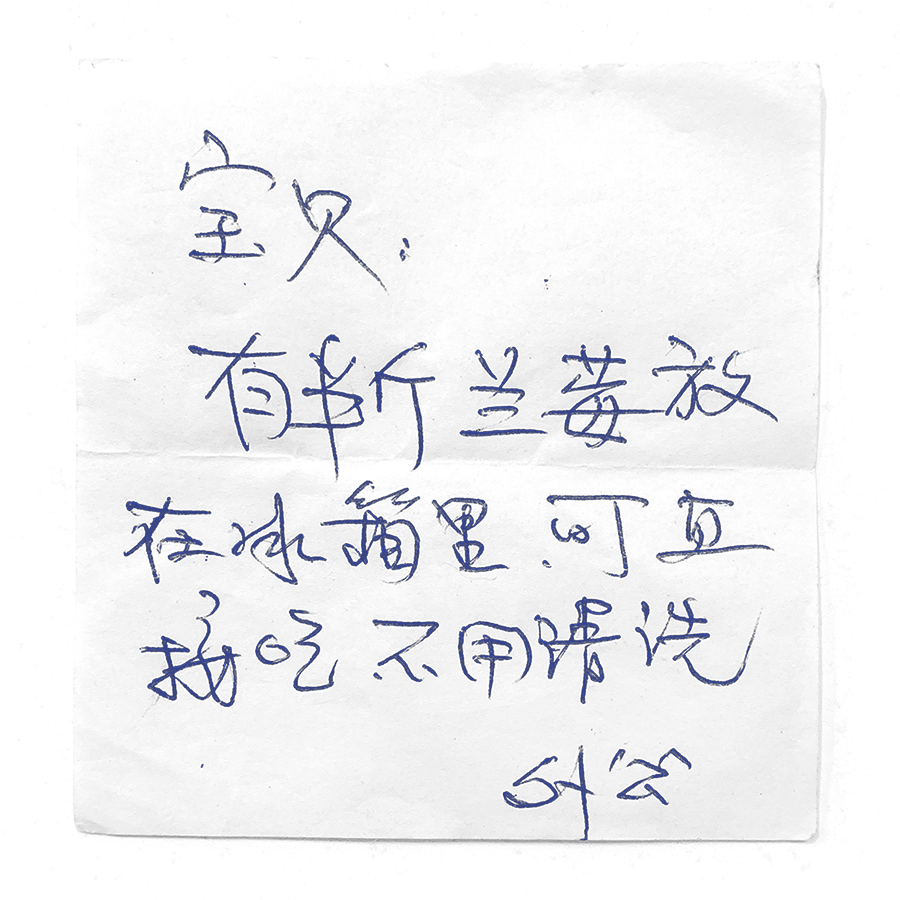 宝贝：
有半斤兰莓放
在冰箱里.可直
接吃不用清洗
外公